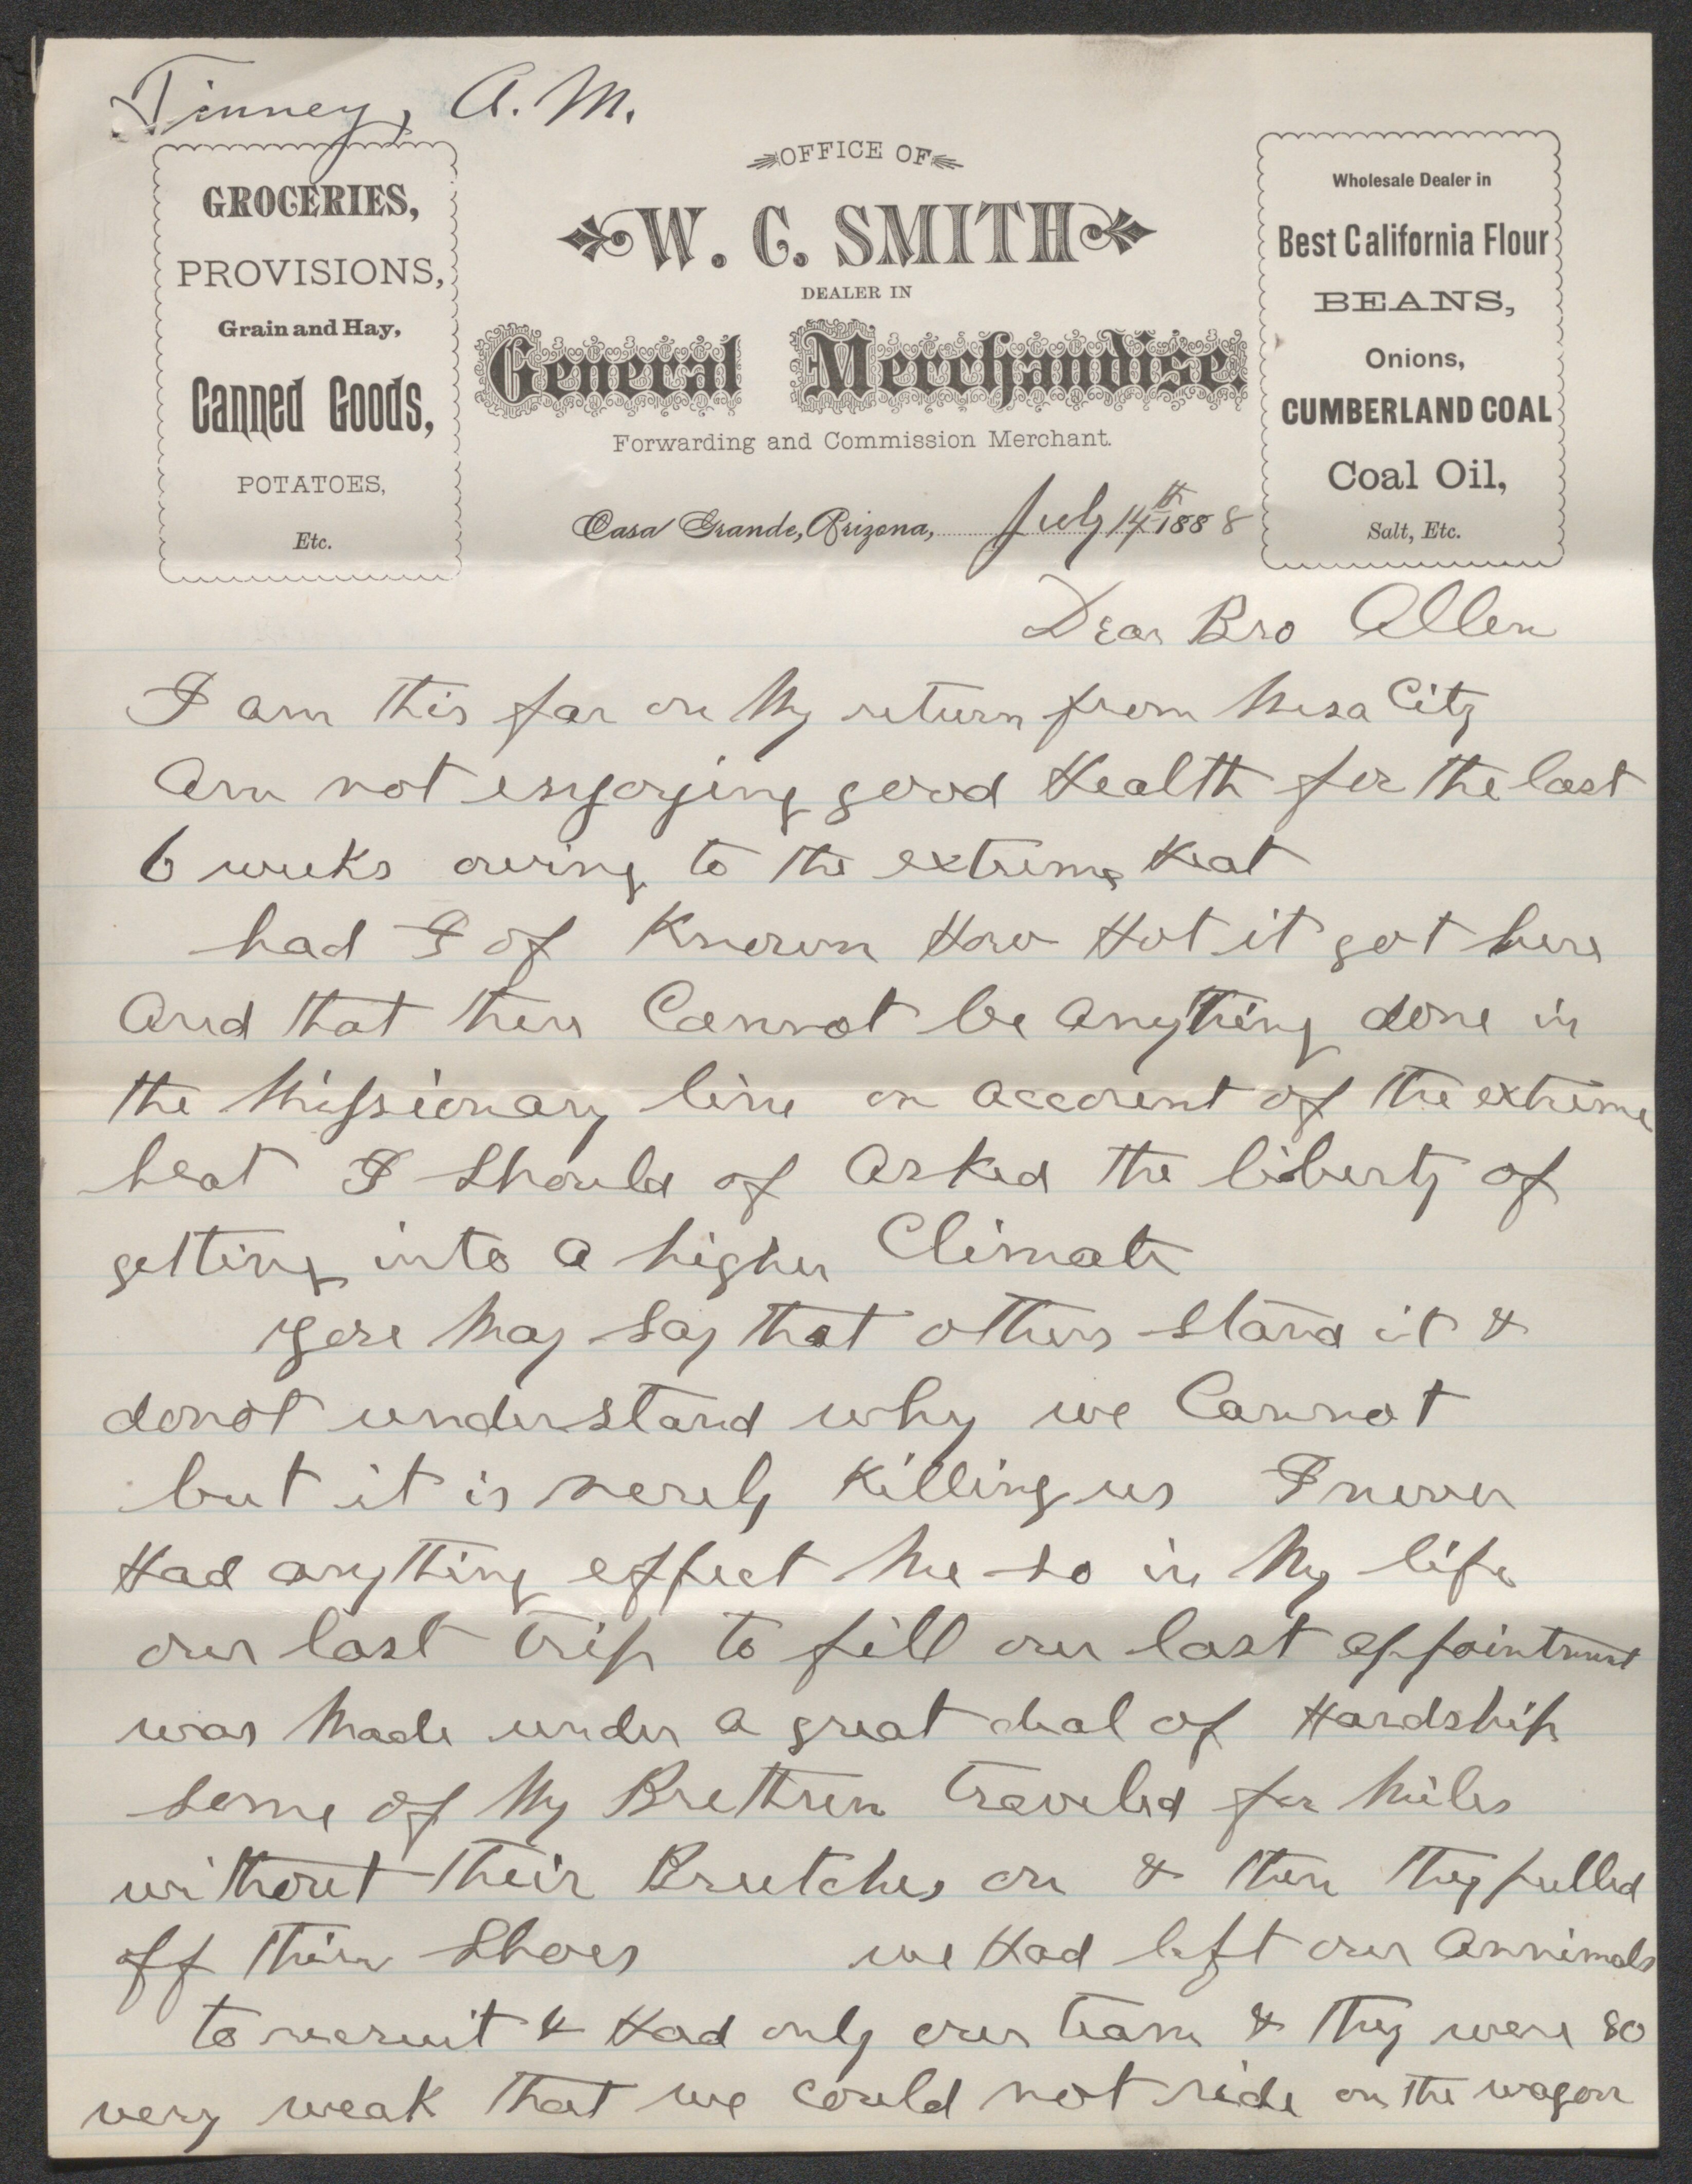 Tinney, A. M.
GROCERIES,
PROVISIONS,
Grain and Hay,
Canned Goods,
POTATOES,
Etc.
OFFICE OF
W. C. SMITH
DEALER IN
General Merchandise.
Forwarding and Commission Merchant.
Casa Grande, Arizona, July 14th 1888
Wholesale Dealer in
Best California Flour
BEANS,
Onions,
CUMBERLAND COAL
Coal Oil,
Salt, Etc.
Dear Bro Allen
I am this far on My return from Mesa City
Am not enjoying good Health for the last
6 weeks owing to the extreme Heat
had I of Known How Hot it got here
And that there Cannot be Anything done in
the Missionary line on account of the extreme
heat I Should of Asked the liberty of
getting into a higher Climate
You May Say that others stand it &
donot understand why we Cannot
but it is merely Killing us I never
Had anything effect Me so in My life
our last trip to fill our last appointment
was Made under a great deal of Hardship
some of My Brethren Traveled for Miles
without their Brutches on & then they pulled
off their Shoes we Had left our Annimals
to recruit & Had only our team & they were so
very weak that we could not ride on the wagon